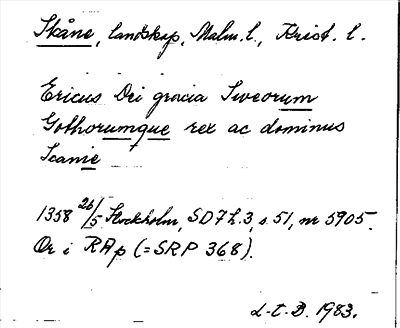 Skåne, landskap, Malm. l., Krist. l.
Ericus Dei gracia Sweorum
Gothorumque rex ac dominus
Scanie
1358 26/5 Stockholm, SD 7 h. 3, s. 51, nr 5905.
Or i RAp (= SRP 368).
L-t-B. 1983.